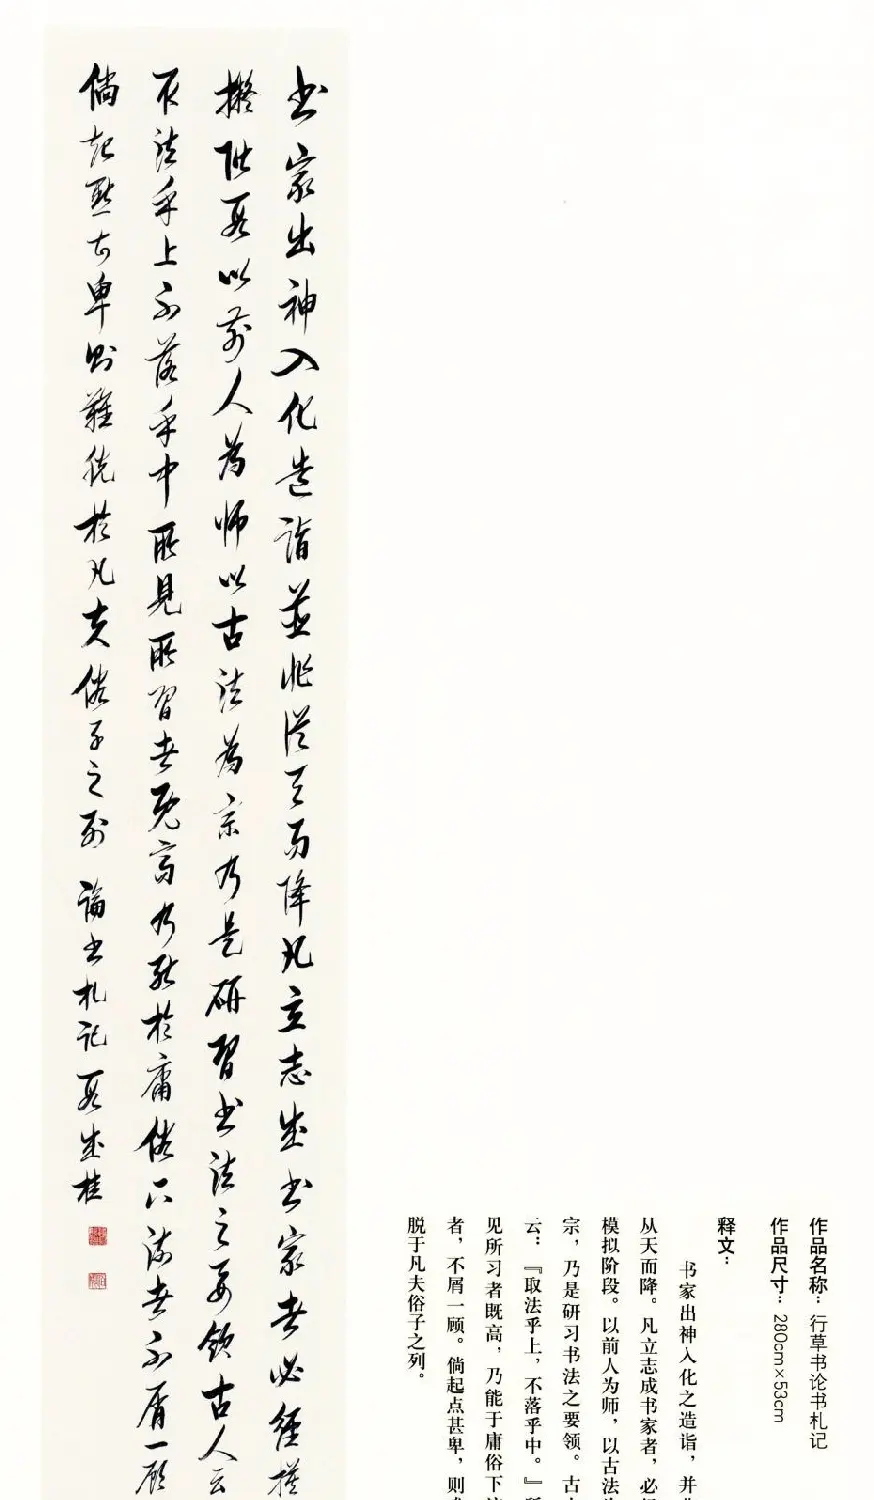 书家出神入化造詣並非從天而降凡立志成书家者必經摸
擬階段以前人為师以古法為宗乃是研習书法之要领古人云
取法乎上不落乎中所見所習者既高乃能於庸俗下流者不屑一顾
倘起點甚卑则難脱於凡夫俗子之列 論书札记 段成桂
作品名称：行草书论书札记
作品尺寸：280cm×53cm
释文：
书家出神入化之造诣，并非
从天而降。凡立志成书家者，必经
模拟阶段。以前人为师，以古法为
宗，乃是研习书法之要领。古人
云：『取法乎上，不落乎中。』所
见所习者既高，乃能于庸俗下流
者，不屑一顾。倘起点甚卑，则难
脱于凡夫俗子之列。